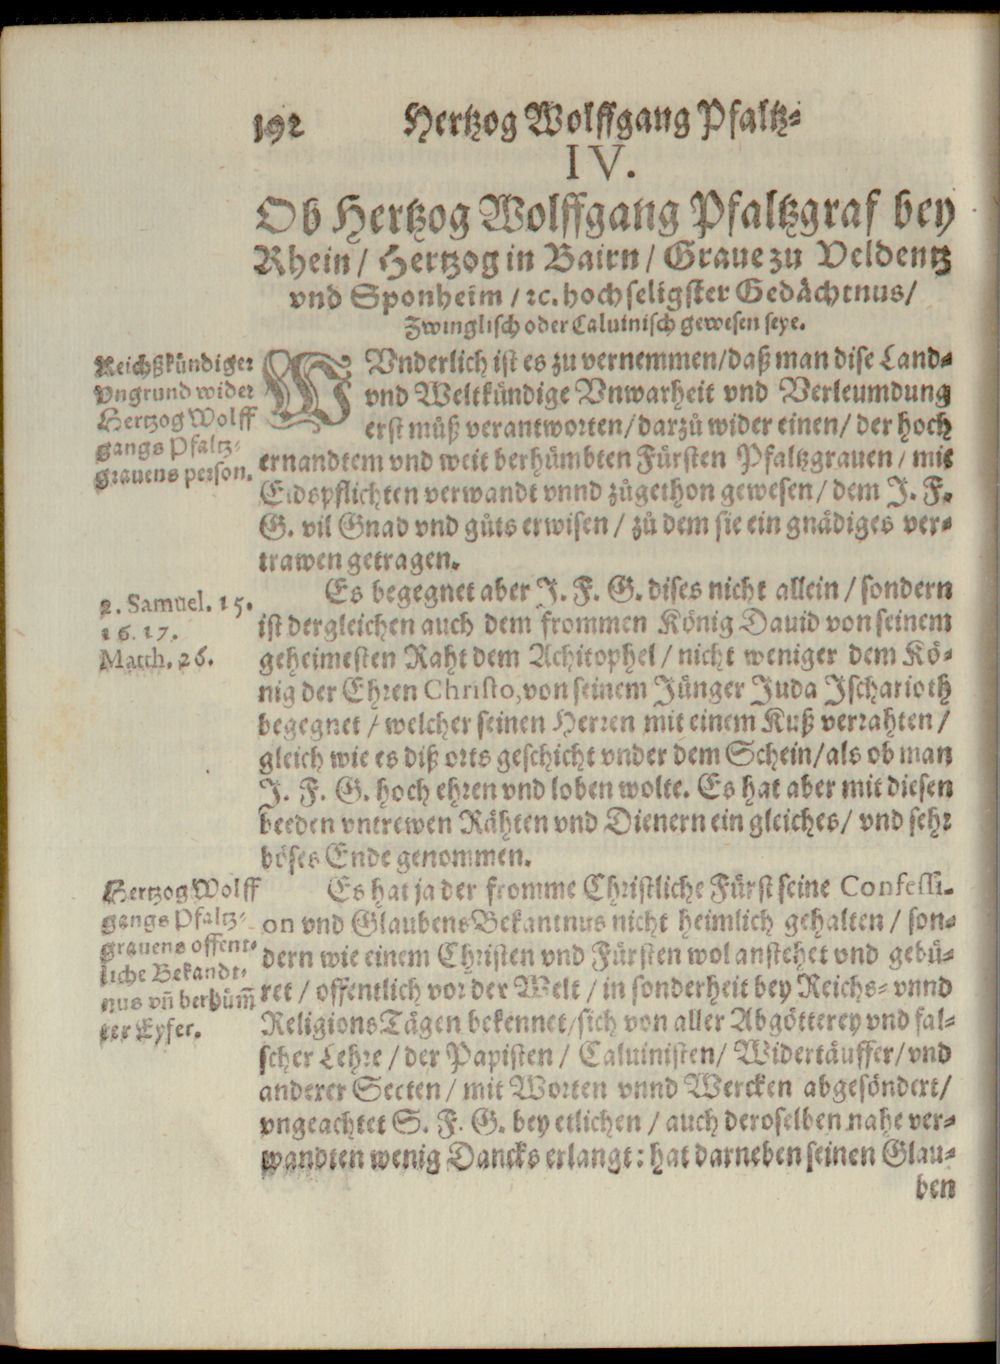 192 Hertzog Wolffgang Pfaltz-
IV.
Ob Hertzog Wolffgang Pfaltzgraf bey
Rhein / Hertzog in Bairn / Graue zu Veldentz
vnd Sponheim / ꝛc. hochseligster Gedächtnus /
Zwinglisch oder Caluinisch gewesen seye.
Reichßkündiger
vngrund wider
Hertzog Wolff
gangs Pfaltz-
grauens person.
WVnderlich ist es zu vernemmen / daß man dise Land-
vnd Weltkündige Vnwarheit vnd Verleumdung
erst müß verantworten / darzů wider einen / der hoch
ernandtem vnd weit berhümbten Fürsten Pfaltzgrauen / mit
Eidspflichten verwandt vnnd zůgethon gewesen / dem J. F.
G. vil Gnad vnd gůts erwisen / zů dem sie ein gnädiges ver-
trawen getragen.
2. Samuel. 15.
16. 17.
Matth. 26.
Es begegnet aber J. F. G. dises nicht allein / sondern
ist dergleichen auch dem frommen König Dauid von seinem
geheimesten Raht dem Achitophel / nicht weniger dem Kö-
nig der Ehren Christo, von seinem Jünger Juda Jscharioth
begegnet / welcher seinen Herren mit einem Kuß verrahten /
gleich wie es diß orts geschicht vnder dem Schein / als ob man
J. F. G. hoch ehren vnd loben wolte. Es hat aber mit diesen
beeden vntrewen Rähten vnd Dienern ein gleiches / vnd sehr
böses Ende genommen.
Hertzog Wolff
gangs Pfaltz-
grauens offent-
liche Bekandt-
nus vn̄ berhüm̄
ter Eyfer.
Es hat ja der fromme Christliche Fürst seine Confessi-
on vnd GlaubensBekantnus nicht heimlich gehalten / son-
dern wie einem Christen vnd Fürsten wol anstehet vnd gebü-
ret / offentlich vor der Welt / in sonderheit bey Reichs- vnnd
ReligionsTägen bekennet / sich von aller Abgötterey vnd fal-
scher Lehre / der Papisten / Caluinisten / Widertäuffer / vnd
anderer Secten / mit Worten vnnd Wercken abgesöndert /
vngeachtet S. F. G. bey etlichen / auch deroselben nahe ver-
wandten wenig Dancks erlangt: hat darneben seinen Glau-
ben